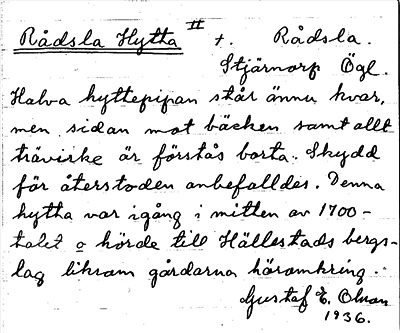 Rådsla Hytta II t. Rådsla.
Stjärnorp Ögl.
Halva hyttepipan står ännu kvar,
men sidan mot bäcken samt allt
trävirke är förstås borta. Skydd
för återstoden anbefalldes. Denna
hytta var igång i mitten av 1700-
talet o hörde till Hällestads bergs-
lag liksom gårdarna häromkring.
Gustaf E. Olson
1936.